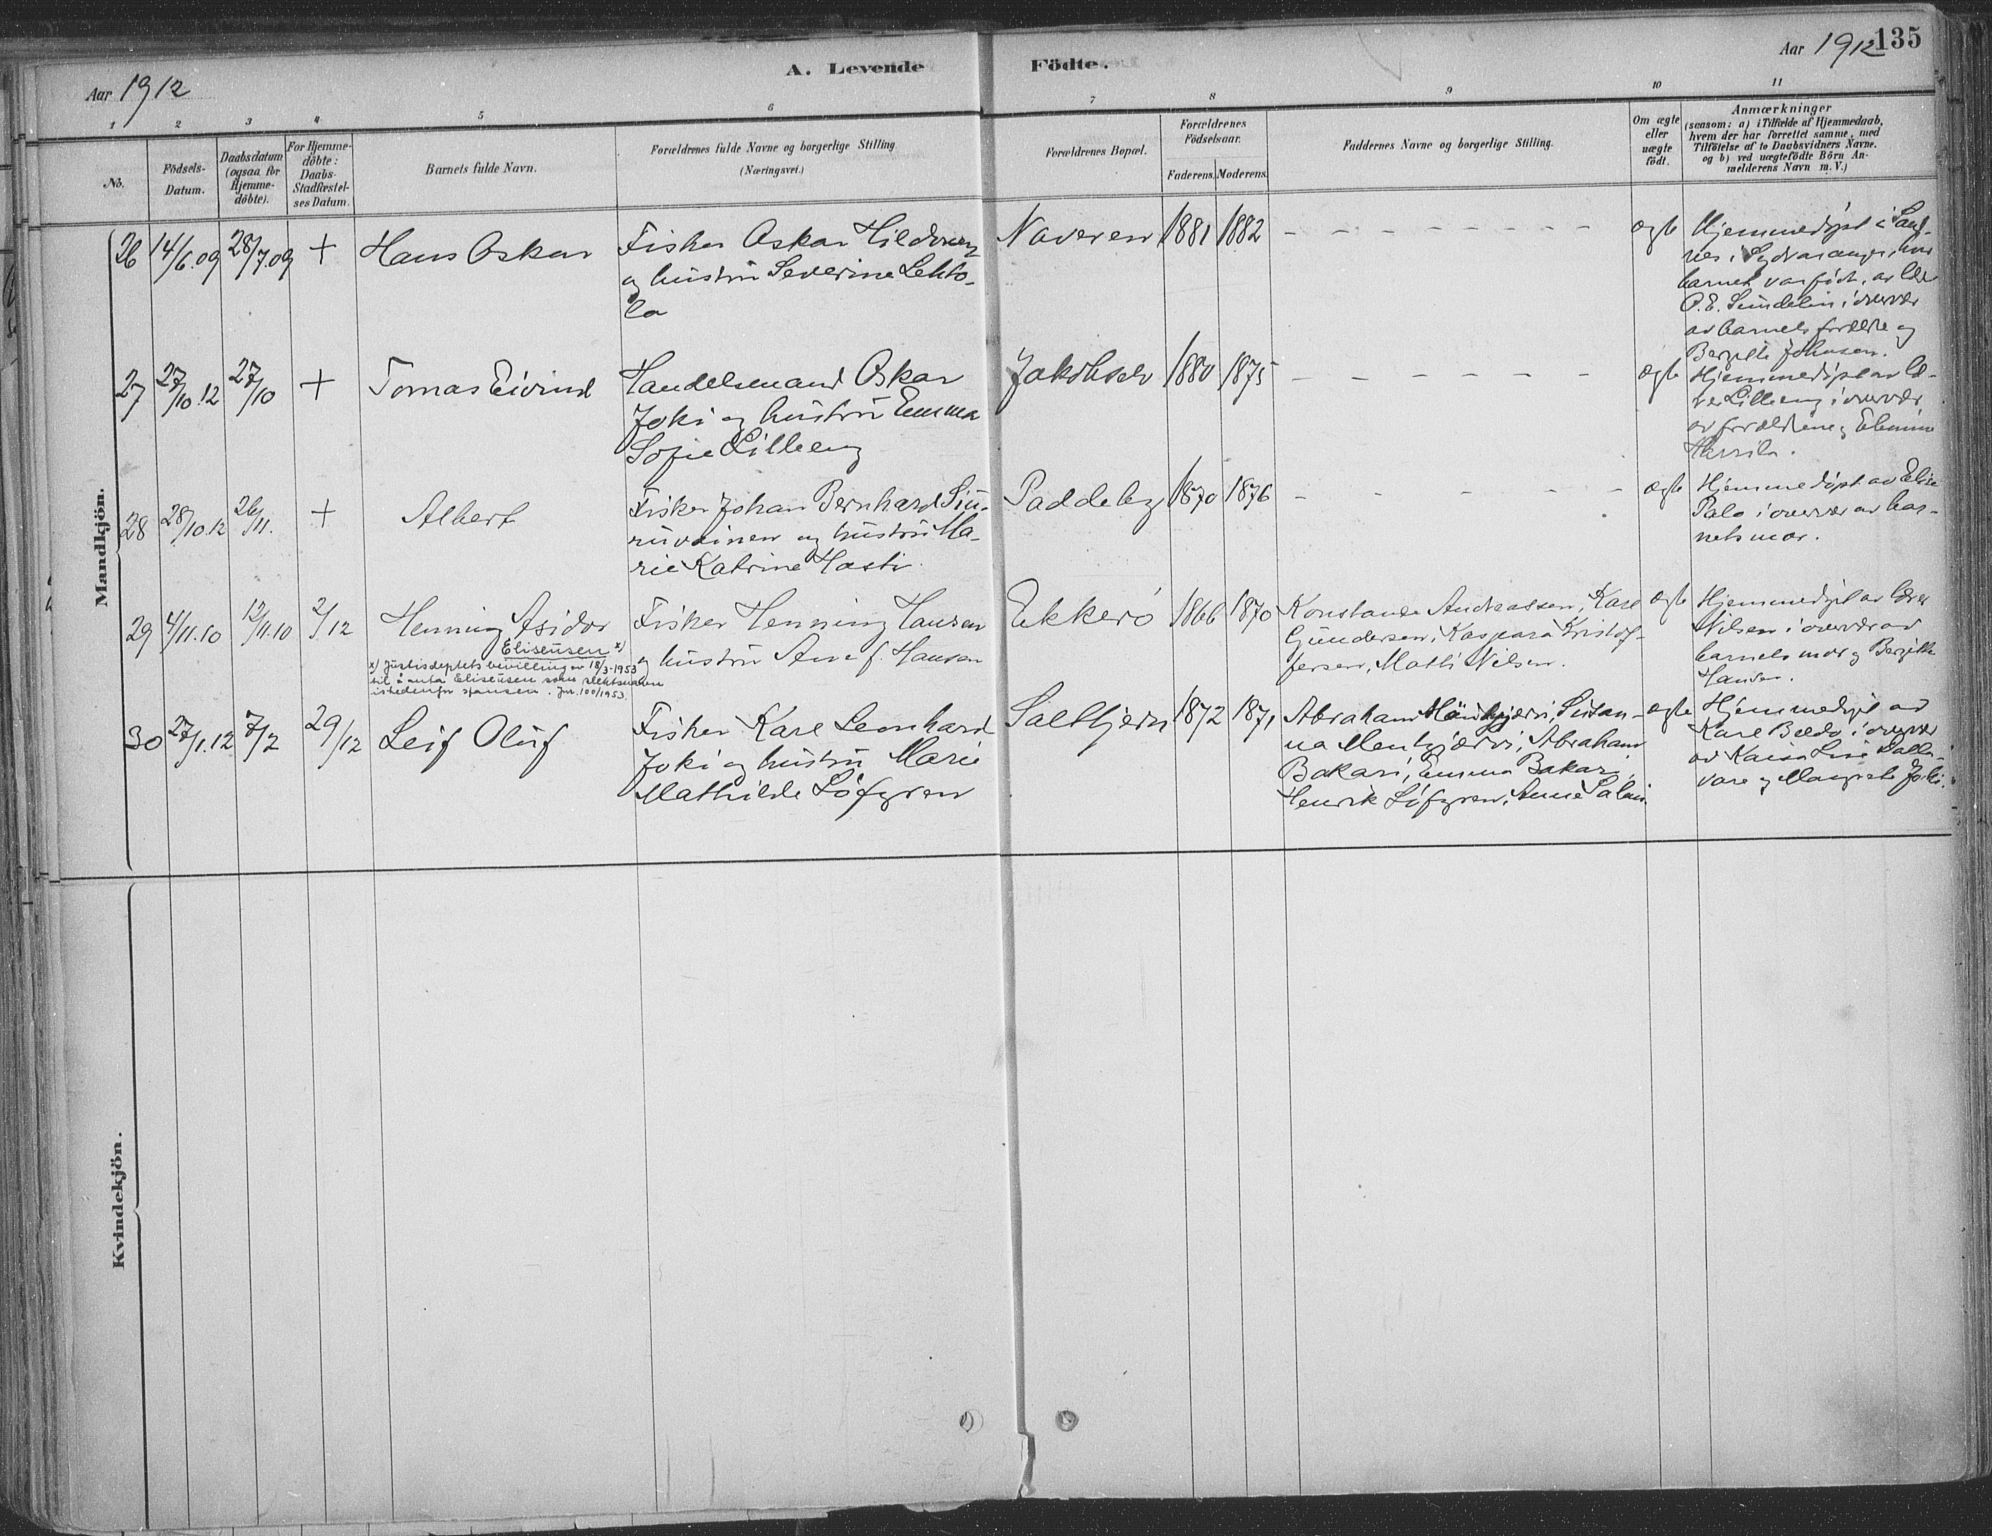 135
Aar 1912
A. Levende Födte.
Aar 1912
1 2 3 4 5 6 7 8 9 10 11
No.
Födsels-
Datum.
Daabsdatum
(ogsaa for
Hjemme-
döbte).
For Hjemme-
döbte:
Daabs-
Stadfæstel-
ses Datum.
Barnets fulde Navn.
Forældrenes fulde Navne og borgerlige Stilling
(Næringsvei.)
Forældrenes Bopæl.
Forældrenes
Födselsaar.
Faderens. Moderens.
Faddernes Navne og borgerlige Stilling.
Om ægte
eller
uægte
födt.
Anmærkninger
(saasom: a) i Tilfælde af Hjemmedaab,
hvem der har forrettet samme, med
Tilföielse af to Daabsvidners Navne.
og b) ved uægtefödte Börn An-
melderens Navn m. V.)
Mandkjön.
26 14/6.09 28/7.09 + Hans Oskar
Fisker Oskar Hildonen
og hustru Severine Lehto-
la
Naveren 1881 1882 - - - - - - - - ægte
Hjemmedøpt i Sand-
nes i Sydvaranger, hvor
barnet var født, av lærer
O.E. Sundelin i overvær
av barnets forældre og
Bergitte Johnsen.
27 27/10.12 27/10 + Tomas Eivind
Handelsmand Oskar
Joki og hustru Emma
Sofie Lilleeng
Jakobselv 1880 1875 - - - - - - - - ægte
Hjemmedøpt av læ-
rer Lilleeng i overvær
av forældrene og
28 28/10.12 26/11. + Albert
Fisker Johan Bernhard Siu-
ruvainen og hustru Ma-
rie Katrine Hasti
Paddeby 1870 1876 - - - - - - ægte
Hjemmedøpt av Elise
Palo i overvær av bar-
nets mor.
29 4/11.10 12/11.10 2/12 Henning Asidor
Eliseusen x)
x) Justisdeptets bevilling av 18/3-1953
til å anta Eliseusen som slektsnavn
istedenfor Hansen. Jnr. 100/1953.
Fisker Henning Hansen
og hustru Ane f. Hansen
Ekkerö 1866 1870
Konstanse Andreassen, Kare
Gundersen, Kaspara Kristof-
fersen, Matti Nilsen.
ægte
Hjemmedøpt av lærer
Nilsen i overvær av
barnets mor og Bergitte
Hansen.
30 27/1.12 7/2 29/12 Leif Oluf
Fisker Karl Leonhard
Joki og hustru Marie
Mathilde Löfgren
Saltbjern 1872 1871
Abraham Mänkjærvi, Susan-
na Menkjærvi, Abraham
Bakari, Emma Bakari,
Henrik Löfgren, Anne
ægte
Hjemmedøpt av
Karl Beldo i overvær
av Kaisa Lise Palla-
vare og Margrete Joki.
Kvindekjön.